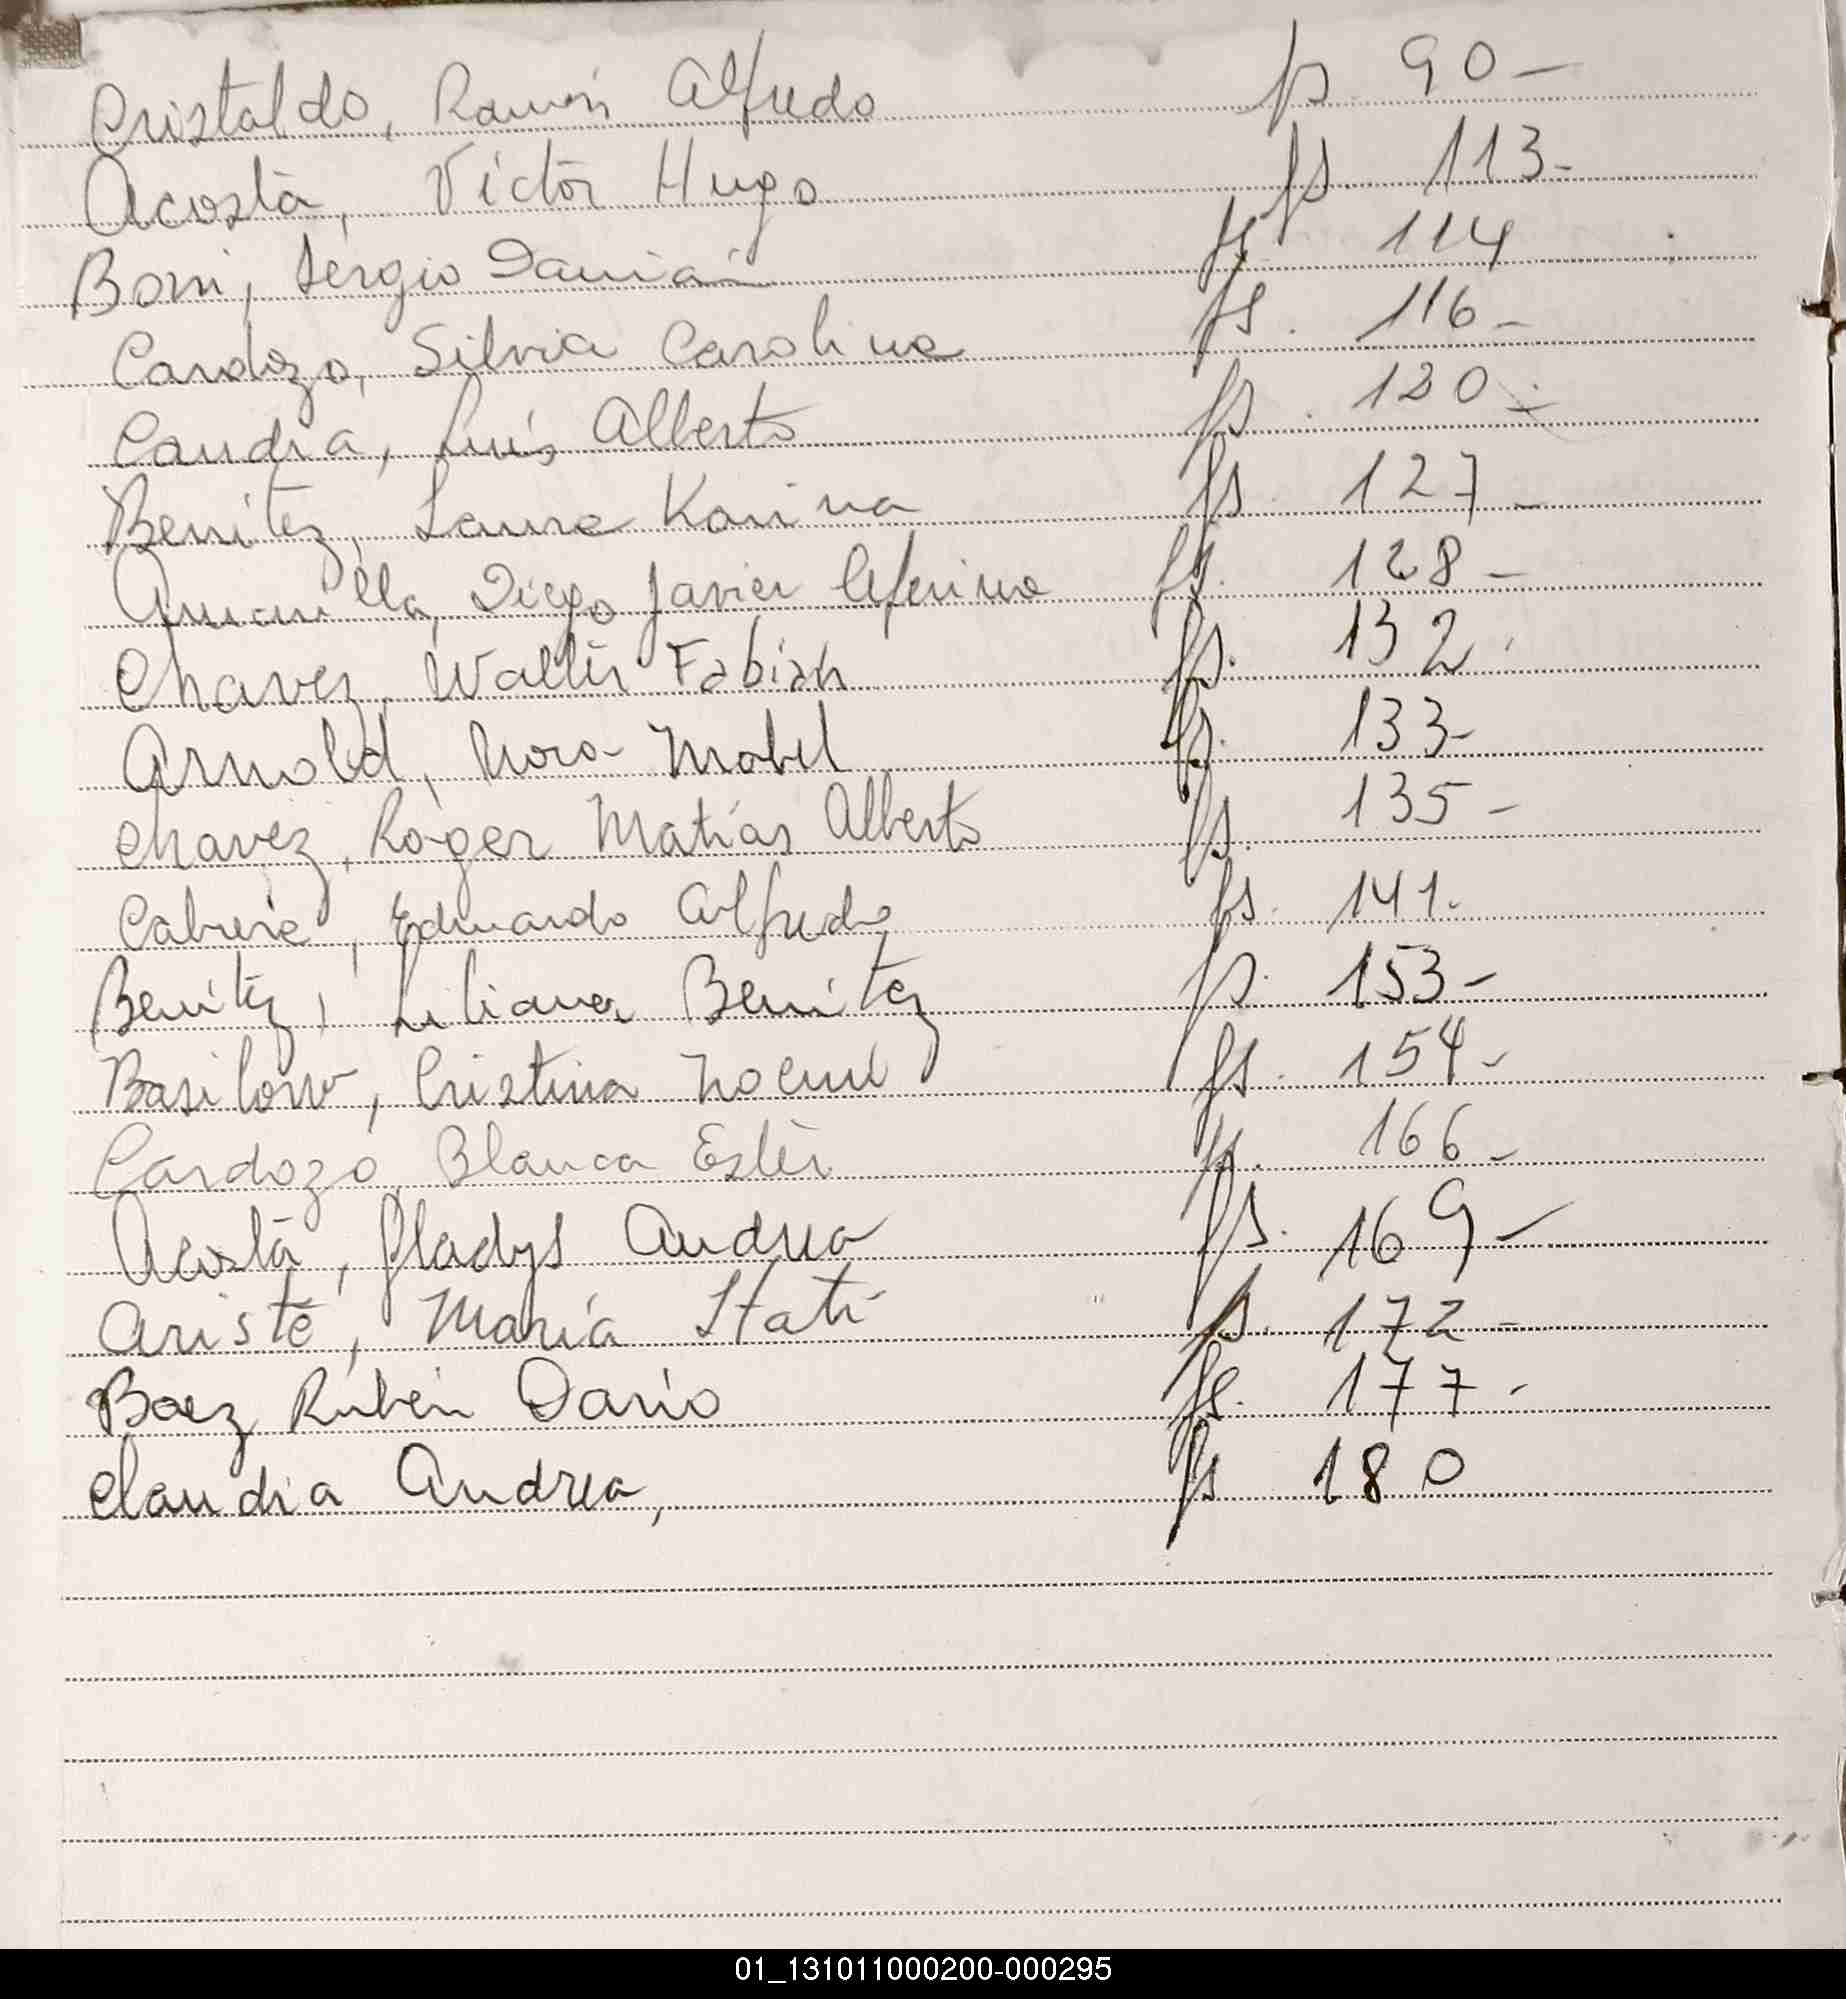 Cristaldo, Ramón Alfredo fs 90-
Acosta, Victor Hugo fs. 113-
Boni, Sergio Damián fs. 114
Cardozo, Silvia Carolina fs. 116-
Candia, Luis Alberto fs. 120-
Benitez, Laura Karina fs. 127-
Amarilla, Diego Javier Ceferino fs. 128-
Chavez, Walter Fabián fs. 132.
Arnold, Nora Mabel fs. 133-
Chavez, Roger Matías Alberto fs. 135-
Cabrera, Eduardo Alfredo fs. 141-
Benitez, Liliana Benitez fs. 153-
Basilow, Cristina Noemí fs. 154-
Cardozo, Blanca Ester fs. 166-
Acosta, Gladys Andrea fs. 169-
Ariste, María Itatí fs. 172-
Baez Rubén Darío fs. 177-
Claudia Andrea, fs 180
01_131011000200-000295